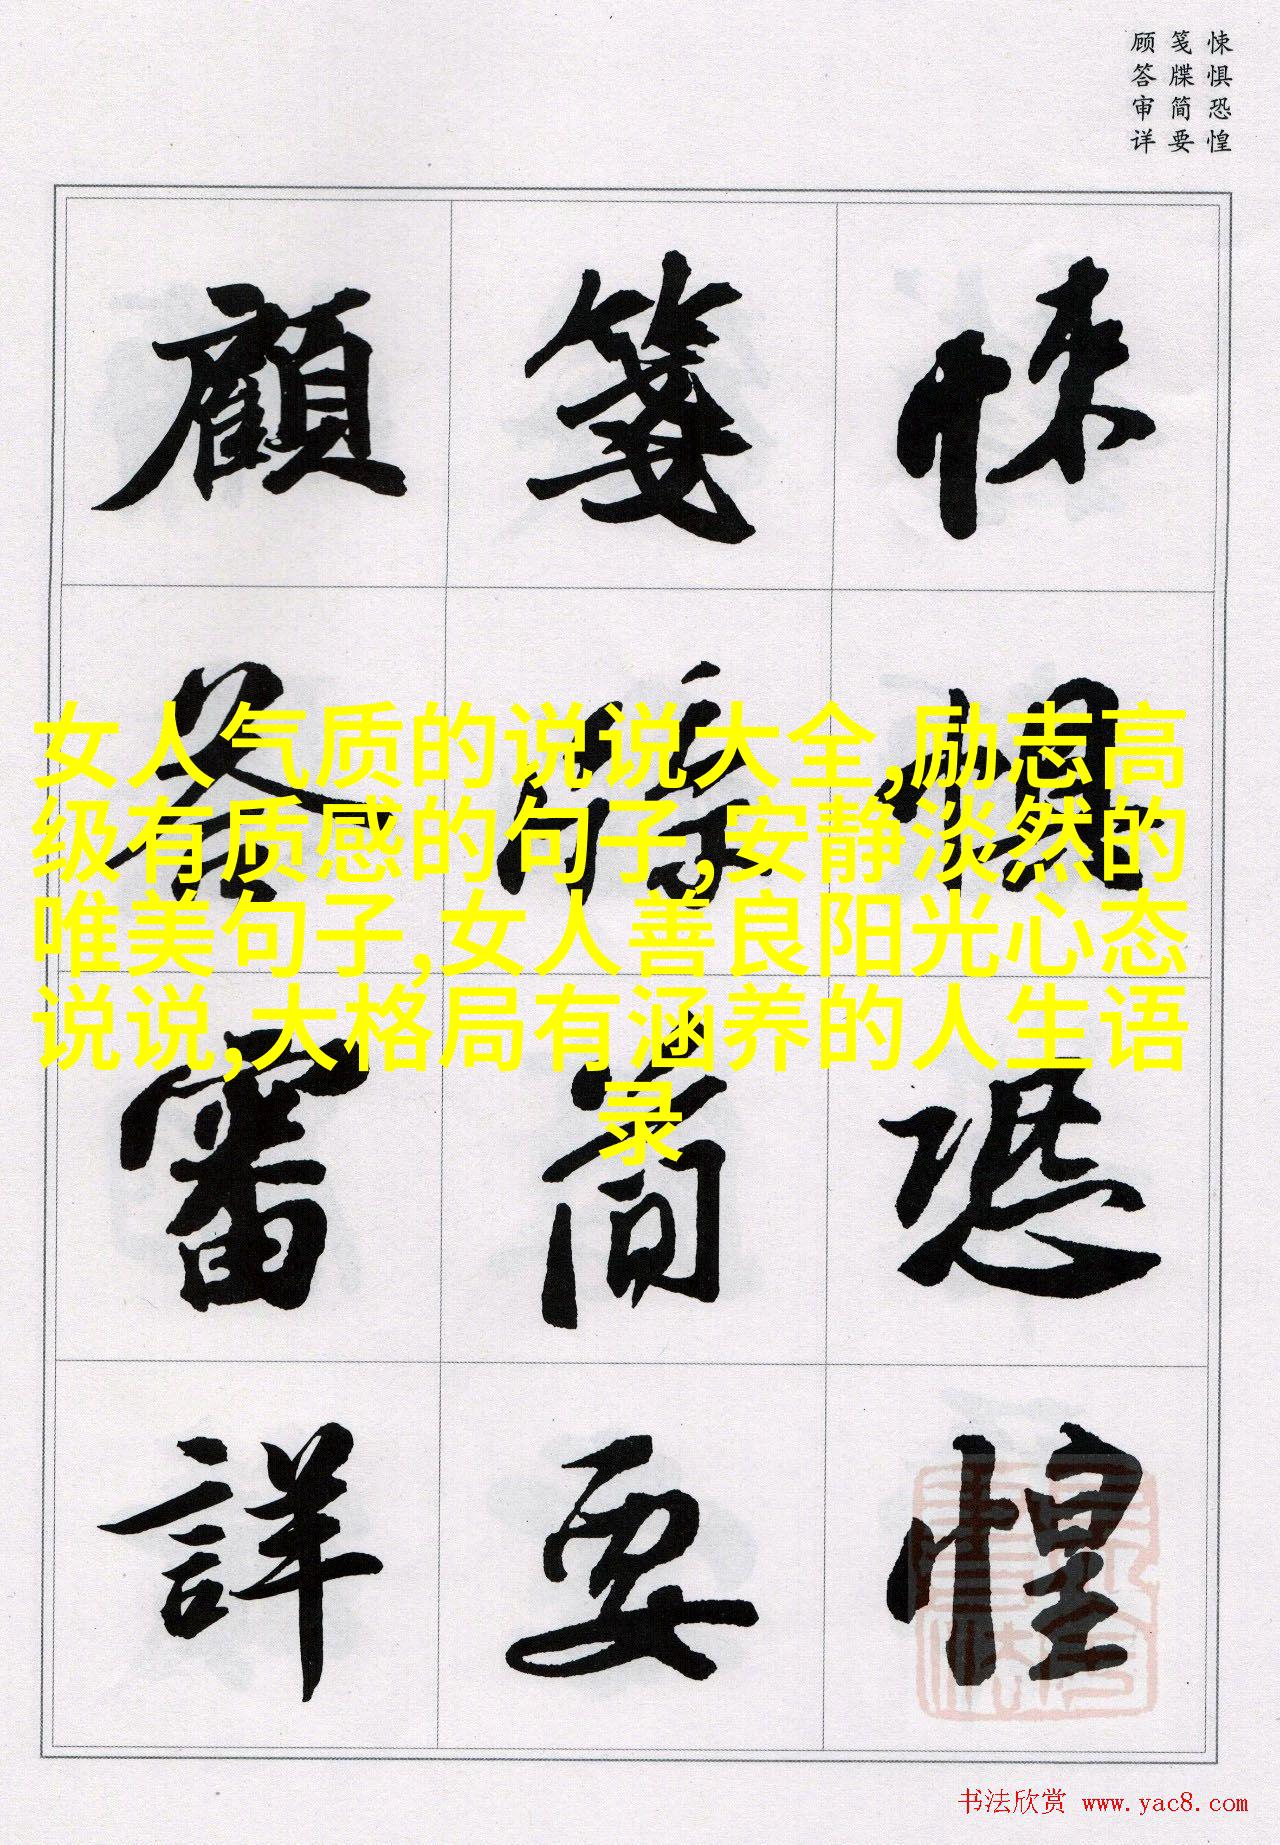 悚惧恐惶
笺牒简要
顾答审详
悚懼恐惶
箋牒简要
顧答審詳
女人气质的说说大全,励志高
级有质感的句子,安静淡然的
唯美句子,女人善良阳光心态
说说,大格局有涵养的人生语
录
书法欣赏 www.yac8.com